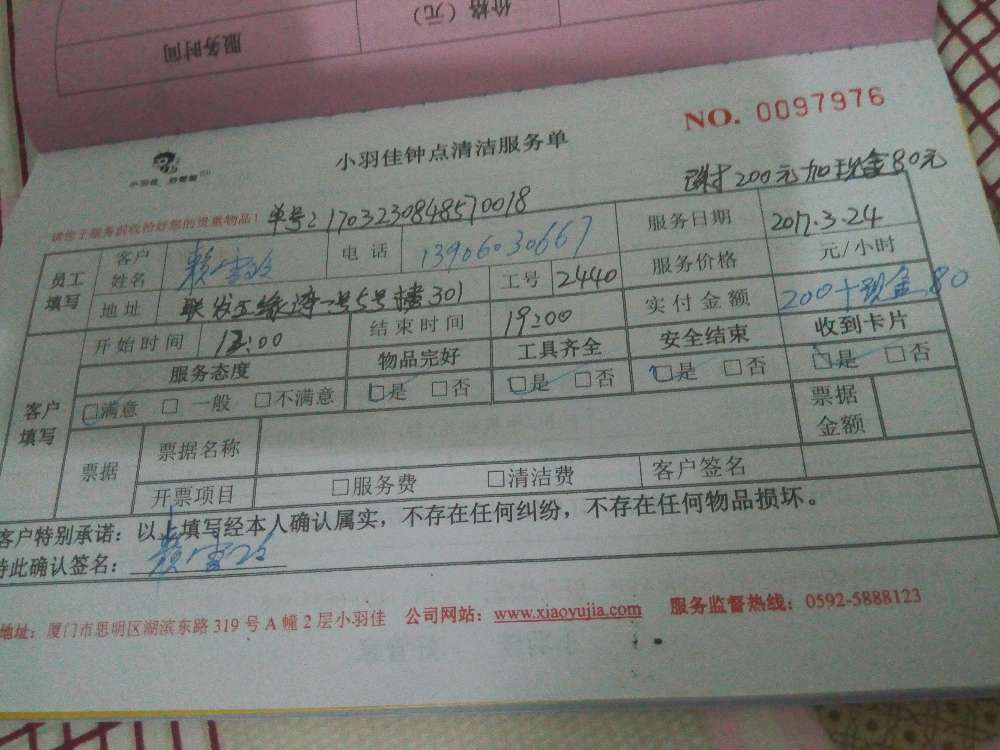 价格（元）
服务时间
NO. 0097976
小羽佳钟点清洁服务单
200元加现金80元
请您于服务前收拾好您的贵重物品！
单号：1703230848570018
员工填写 客户姓名 电话 13906030667 服务日期 2017.3.24
地址 联发五缘湾一号5号楼301 工号 2440 服务价格 元/小时
开始时间 12:00 结束时间 19:00 实付金额 200+现金80
客户填写 服务态度 物品完好 工具齐全 安全结束 收到卡片
□满意 □一般 □不满意 □是 □否 □是 □否 □是 □否 □是 □否
票据 票据名称 票据金额
开票项目 □服务费 □清洁费 客户签名
客户特别承诺：以上填写经本人确认属实，不存在任何纠纷，不存在任何物品损坏。
特此确认签名：
地址：厦门市思明区湖滨东路319号A幢2层小羽佳 公司网站：www.xiaoyujia.com 服务监督热线：0592-5888123